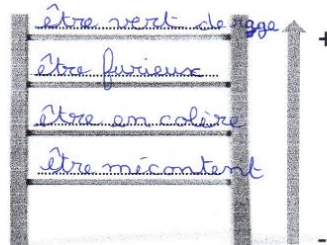 être vert de rage
+
être furieux
être en colère
être mécontent
-